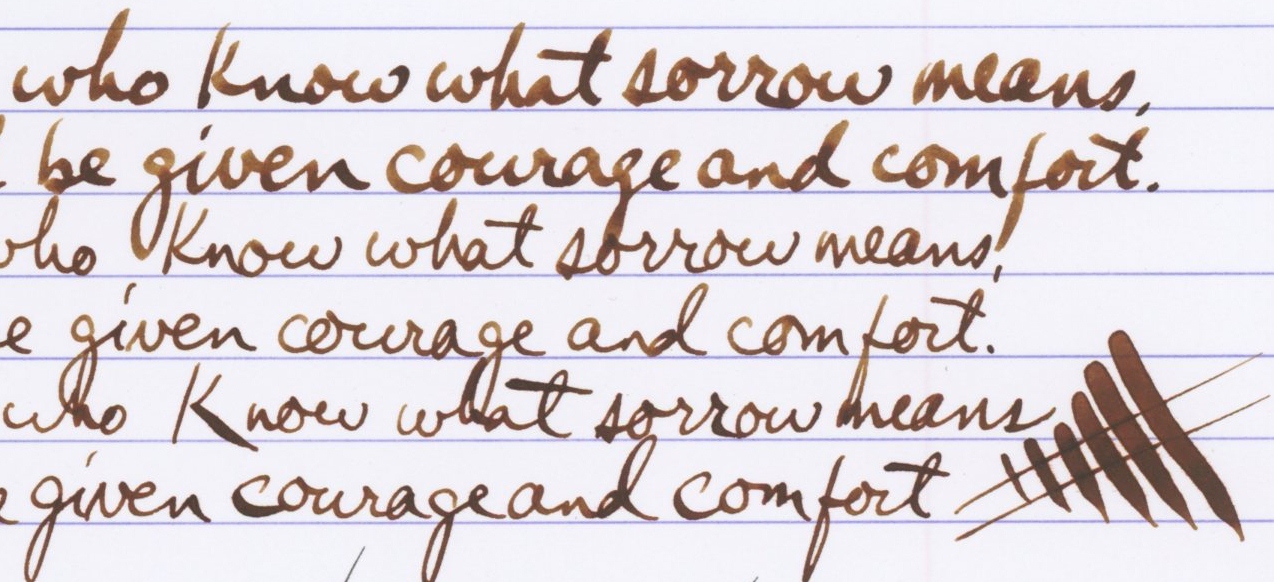 who Know what sorrow means,
be given courage and comfort.
who Know what sorrow means,
given courage and comfort.
who Know what sorrow means
given courage and comfort